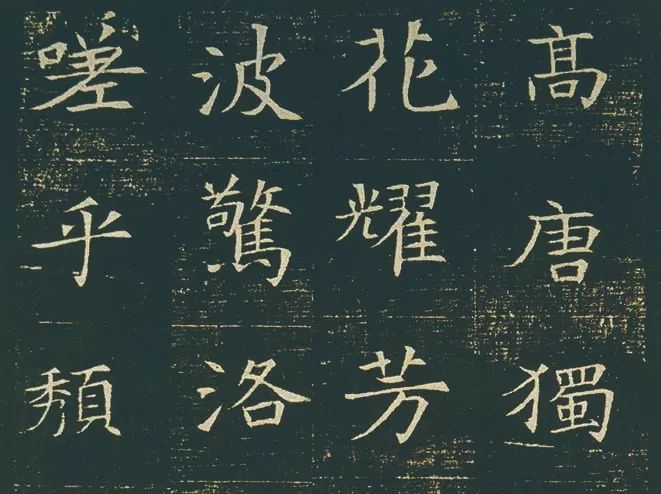 髙唐獨
花耀芳
波驚洛
嗟乎頽